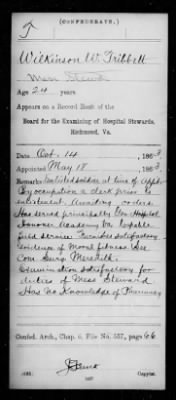 (CONFEDERATE.)
T
Wilkinson W. Tribbett
Mess Steward
Age 24 years
Appears on a Record Book of the
Board for the Examining of Hospital Stewards,
Richmond, Va.
Date Oct. 14, 1863
Appointed May 18, 1863.
Remarks: Enlisted soldier at time of Appt.
By occupation a clerk prior to
enlistment. Awaiting orders
Has served principally Gen. Hospital
Hanover Academy Va. Capable
field service. Furnishes satisfactory
evidence of moral fitness. See
Com. Surg. Meredith.
Examination satisfactory for
duties of Mess Steward
Has no knowledge of Pharmacy
Confed. Arch., Chap. 6, File No. 557, page 66
Copyist.